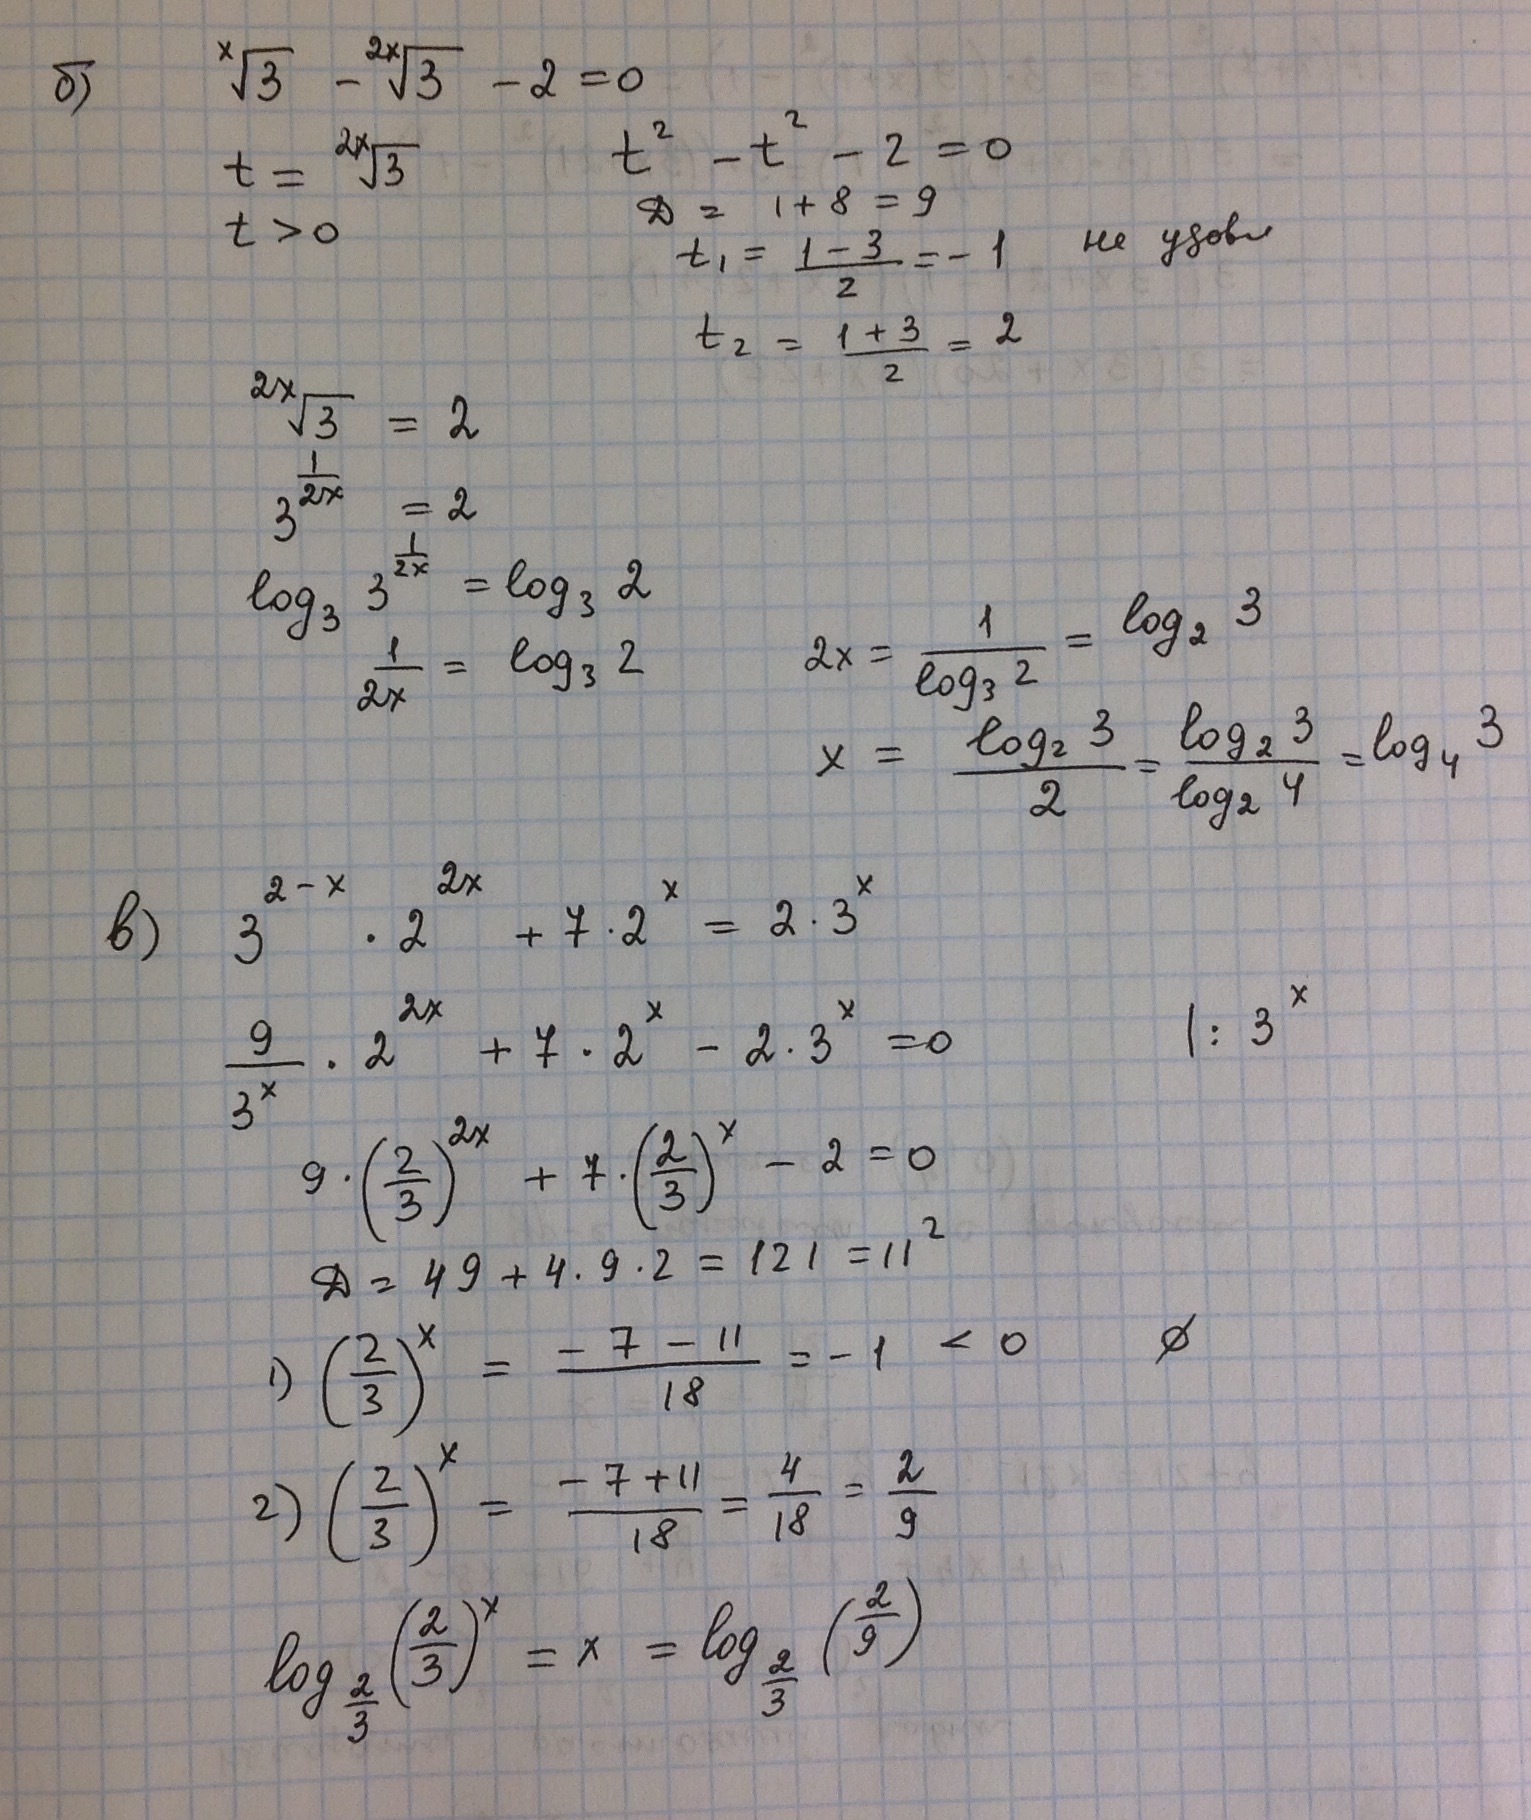 б) ˣ√3 - ²ˣ√3 - 2 = 0
t = ²ˣ√3 t² - t² - 2 = 0
t > 0 D = 1 + 8 = 9
t₁ = (1 - 3)/2 = - 1 не удовл
t₂ = (1 + 3)/2 = 2
²ˣ√3 = 2
3^(1/2x) = 2
log₃ 3^(1/2x) = log₃ 2
1/2x = log₃ 2 2x = 1/(log₃ 2) = log₂ 3
x = (log₂ 3)/2 = (log₂ 3)/(log₂ 4) = log₄ 3
в) 3^(2-x) · 2^(2x) + 7 · 2^x = 2 · 3^x
9/3^x · 2^(2x) + 7 · 2^x - 2 · 3^x = 0 |: 3^x
9 · (2/3)^(2x) + 7 · (2/3)^x - 2 = 0
D = 49 + 4 · 9 · 2 = 121 = 11²
1) (2/3)^x = (-7 - 11)/18 = - 1 < 0 ∅
2) (2/3)^x = (-7 + 11)/18 = 4/18 = 2/9
log_(2/3) (2/3)^x = x = log_(2/3) (2/9)